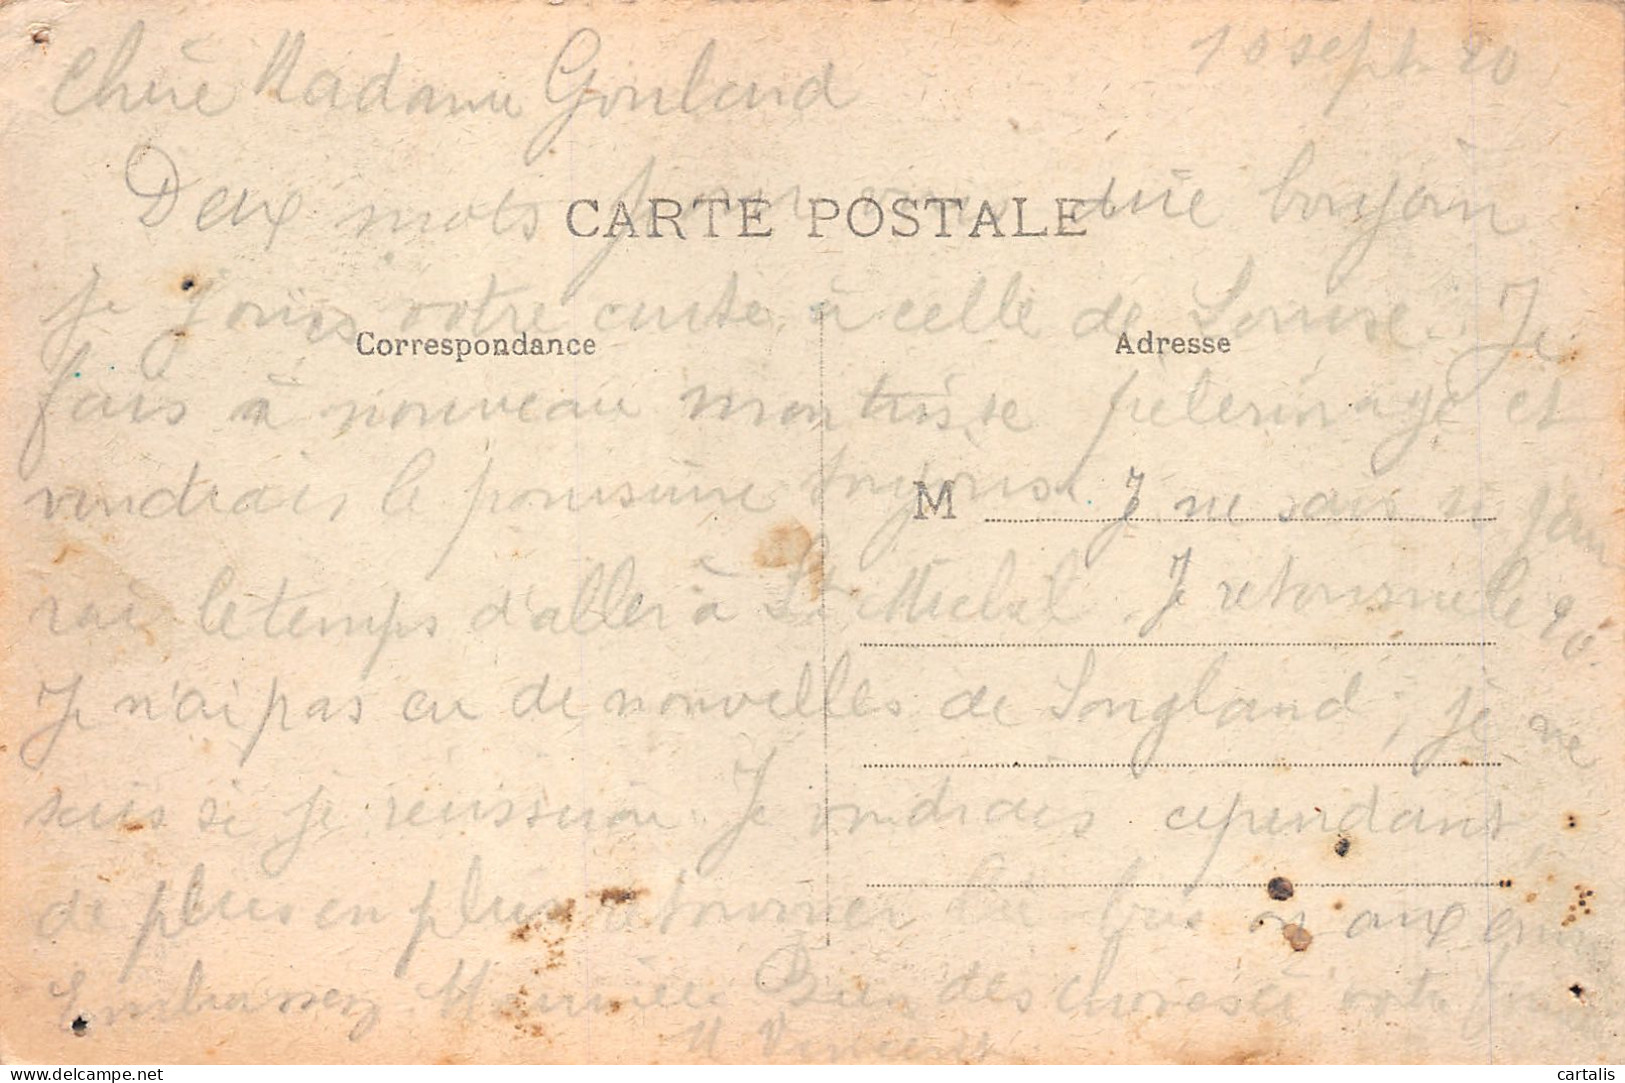 10 sept 20
Chère Madame Goulard
Deux mots pour vous dire bonjour
CARTE POSTALE
je joins votre carte à celle de Louise. Je
Correspondance
Adresse
fais à nouveau mon triste pelerinage et
viendrais le poursuivre toujours. Je ne sais si j'au
M
rais le temps d'aller à St Michel. Je retournerai le 20.
Je n'ai pas eu de nouvelles de Songland, je ne
sais si je reussirai. Je voudrais cependant
de plus en plus retourner là bas ou aux
Embrassez Bien des choses à votre
M Vincent
delcampe.net
cartalis